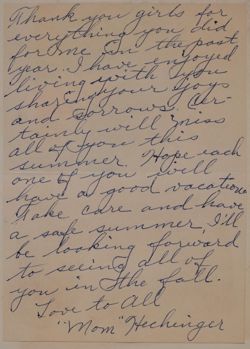 Thank you girls for
everything you did
for me in the past
year. I have enjoyed
living with you
sharing your joys
and sorrows. Cer-
tainly will miss
all of you this
summer. Hope each
one of you will
have a good vacation.
Take care and have
a safe summer, I'll
be looking forward
to seeing all of
you in the fall.
Love to All
"Mom" Hechinger